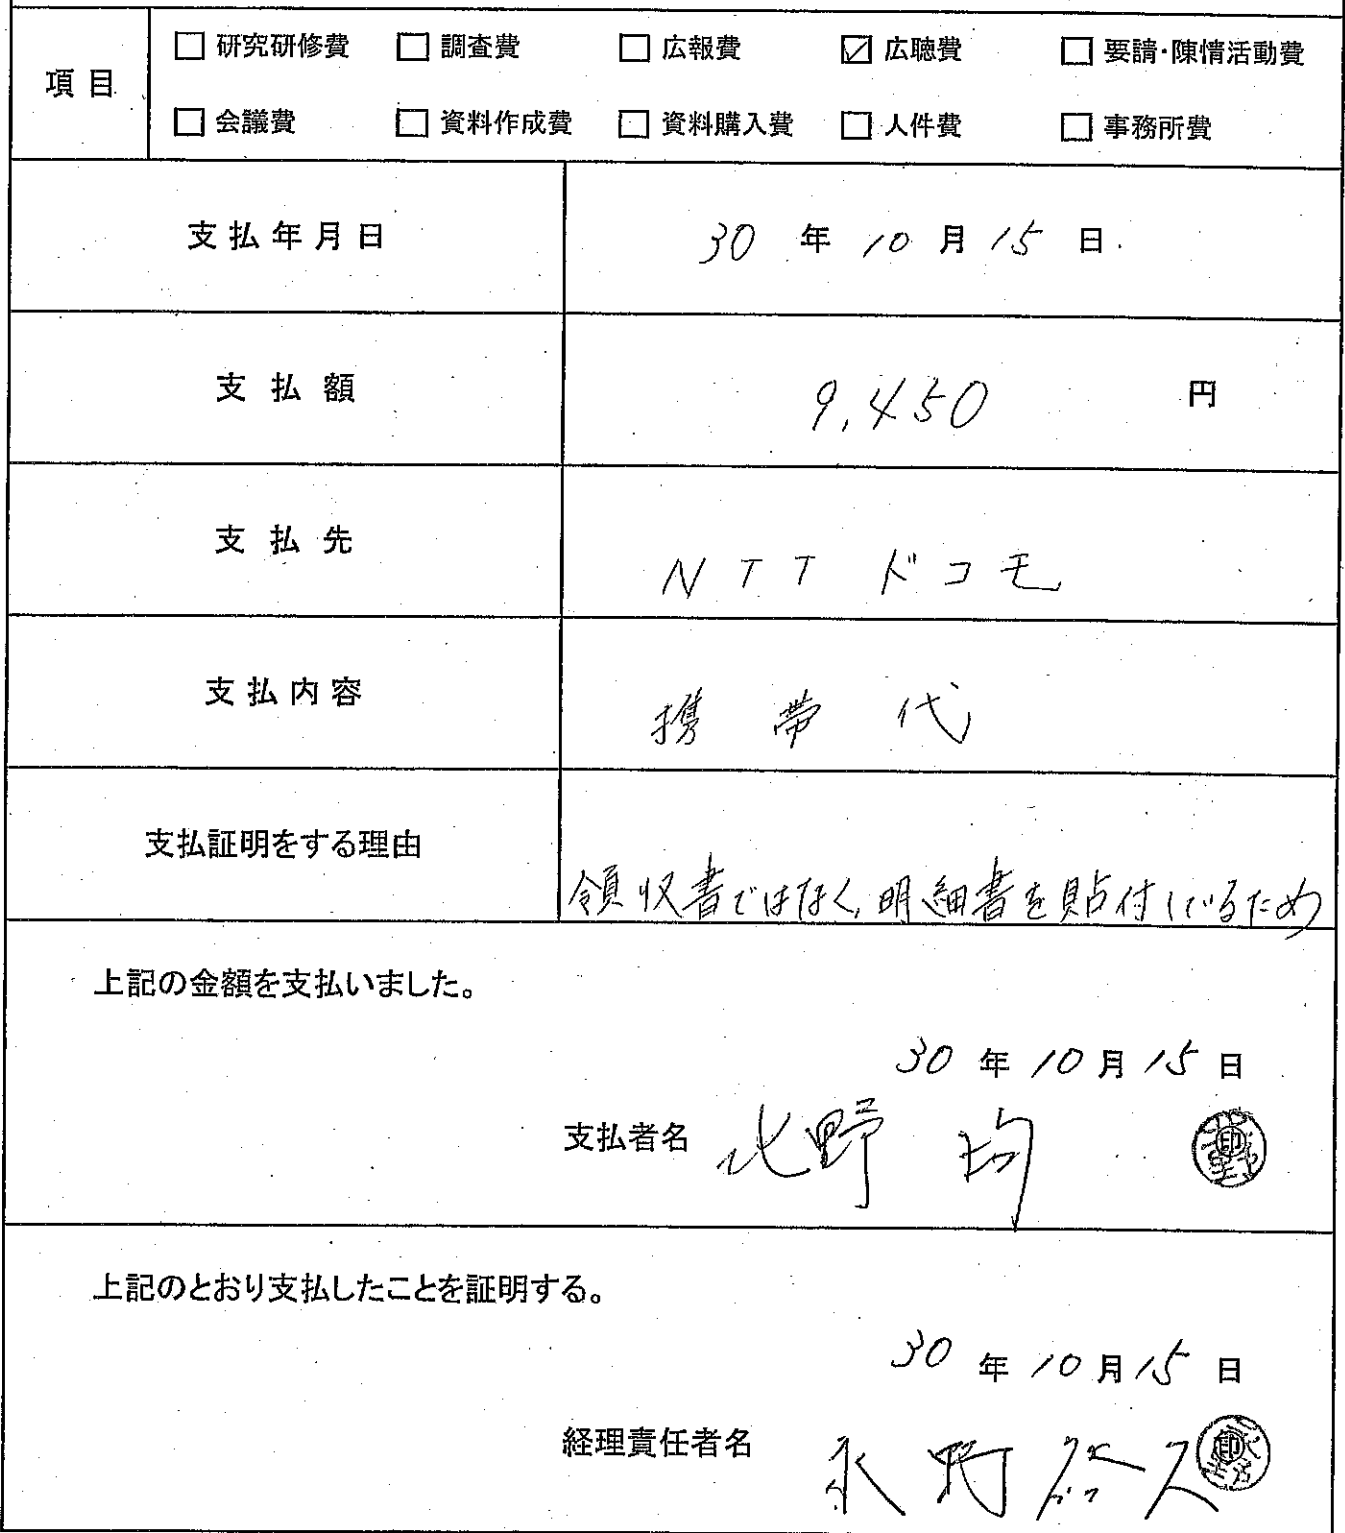 項目
□ 研究研修費 □ 調査費 □ 広報費 ☑ 広聴費 □ 要請・陳情活動費
□ 会議費 □ 資料作成費 □ 資料購入費 □ 人件費 □ 事務所費
支払年月日 30 年 10 月 15 日
支払額 9,450 円
支払先 NTTドコモ
支払内容 携帯代
支払証明をする理由 領収書ではなく、明細書を貼付しているため
上記の金額を支払いました。
30 年 10 月 15 日
支払者名 北野 均 印
上記のとおり支払したことを証明する。
30 年 10 月 15 日
経理責任者名 永野 印